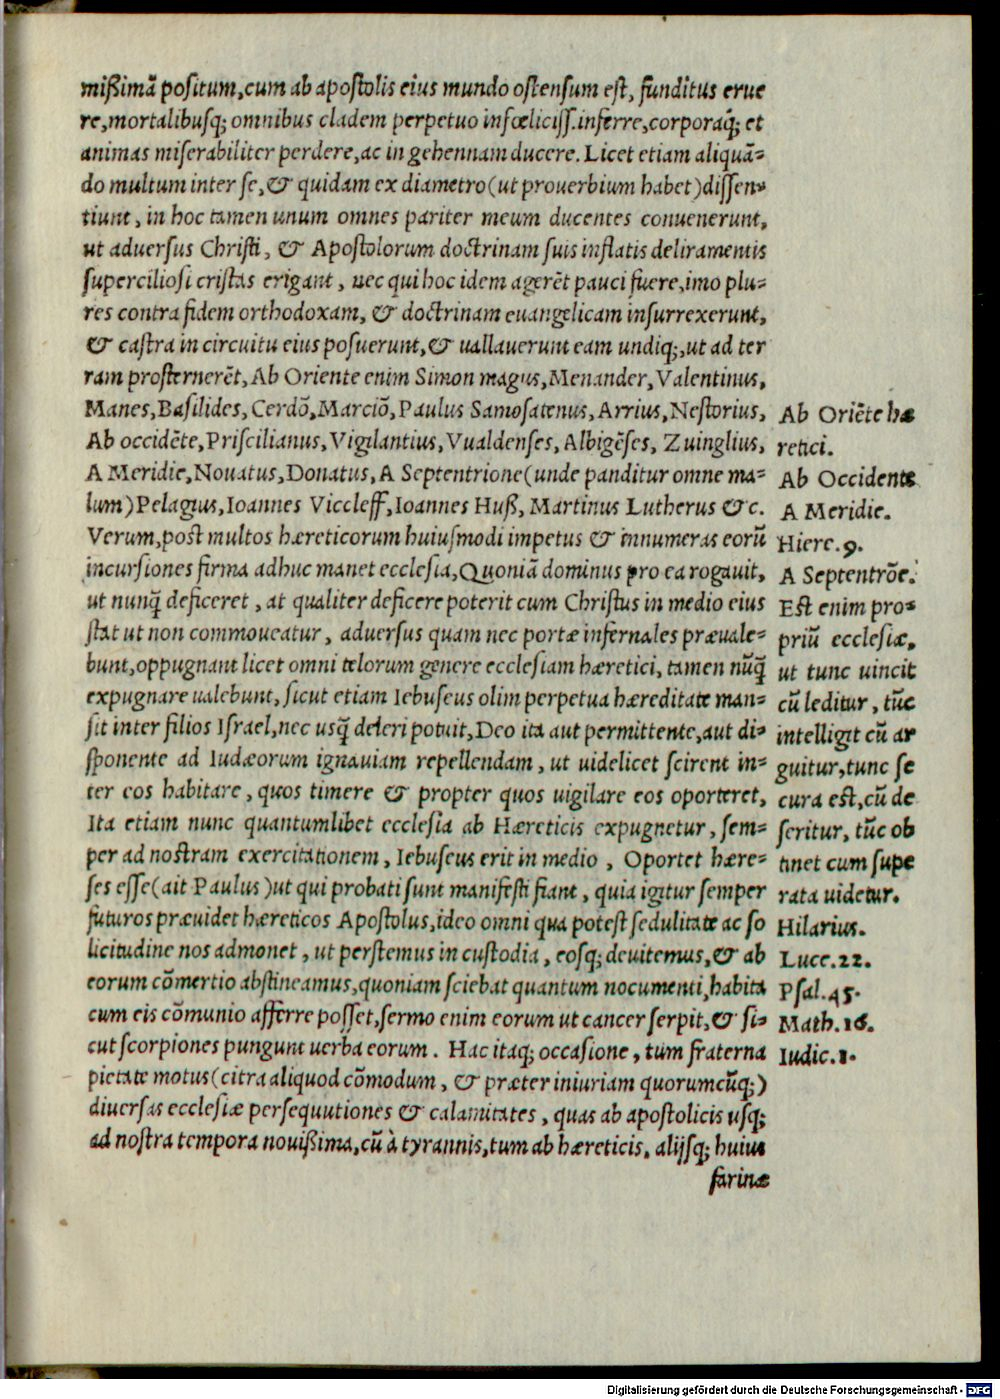 mißimã positum, cum ab apostolis eius mundo ostensum est, funditus erue
re, mortalibusq; omnibus cladem perpetuo infœliciss. inferre, corporaq̃; et
animas miserabiliter perdere, ac in gehennam ducere. Licet etiam aliquã-
do multum inter se, & quidam ex diametro (ut prouerbium habet) dissen-
tiunt, in hoc tamen unum omnes pariter meum ducentes conuenerunt,
ut aduersus Christi, & Apostolorum doctrinam suis inflatis deliramentis
superciliosi cristas erigant, nec qui hoc idem agerẽt pauci fuere, imo plu-
res contra fidem orthodoxam, & doctrinam euangelicam insurrexerunt,
& castra in circuitu eius posuerunt, & uallauerunt eam undiq;, ut ad ter
ram prosternerẽt, Ab Oriente enim Simon magus, Menander, Valentinus,
Manes, Basilides, Cerdõ, Marciõ, Paulus Samosatenus, Arrius, Nestorius,
Ab occidẽte, Priscilianus, Vigilantius, Vualdenses, Albigẽses, Zuinglius,
A Meridie, Nouatus, Donatus, A Septentrione (unde panditur omne ma-
lum) Pelagius, Ioannes Viccleff, Ioannes Huß, Martinus Lutherus & c.
Verum, post multos hæreticorum huiusmodi impetus & innumeras eorũ
incursiones firma adhuc manet ecclesia, Quoniã dominus pro ea rogauit,
ut nunq̃ deficeret, at qualiter deficere poterit cum Christus in medio eius
stat ut non commoueatur, aduersus quam nec portæ infernales præuale-
bunt, oppugnant licet omni telorum genere ecclesiam hæretici, tamen nũq̃
expugnare ualebunt, sicut etiam Iebuseus olim perpetua hæreditate man-
sit inter filios Israel, nec usq̃ deleri potuit, Deo ita aut permittente, aut di-
sponente ad Iudæorum ignauiam repellendam, ut uidelicet scirent in-
ter eos habitare, quos timere & propter quos uigilare eos oporteret,
Ita etiam nunc quantumlibet ecclesia ab Hæreticis expugnetur, sem-
per ad nostram exercitationem, Iebuseus erit in medio, Oportet hære-
ses esse (ait Paulus) ut qui probati sunt manifesti fiant, quia igitur semper
futuros præuidet hæreticos Apostolus, ideo omni qua potest sedulitate ac so
licitudine nos admonet, ut perstemus in custodia, eosq; deuitemus, & ab
eorum cõmertio abstineamus, quoniam sciebat quantum nocumenti, habita
cum eis cõmunio afferre posset, sermo enim eorum ut cancer serpit, & si-
cut scorpiones pungunt uerba eorum. Hac itaq; occasione, tum fraterna
pietate motus (citra aliquod cõmodum, & præter iniuriam quorumcũq;)
diuersas ecclesiæ persequutiones & calamitates, quas ab apostolicis usq;
ad nostra tempora nouißima, cũ à tyrannis, tum ab hæreticis, alijsq; huius
farinæ
Ab Oriẽte hæ
retici.
Ab Occidente
A Meridie.
Hiere.9.
A Septentrõe.
Est enim pro-
priũ ecclesiæ,
ut tunc uincit
cũ leditur, tũc
intelligit cũ ar
guitur, tunc se
cura est, cũ de
seritur, tũc ob
tinet cum supe
rata uidetur.
Hilarius.
Luce.22.
Psal.45.
Math.16.
Iudic.1.
Digitalisierung gefördert durch die Deutsche Forschungsgemeinschaft - DFG